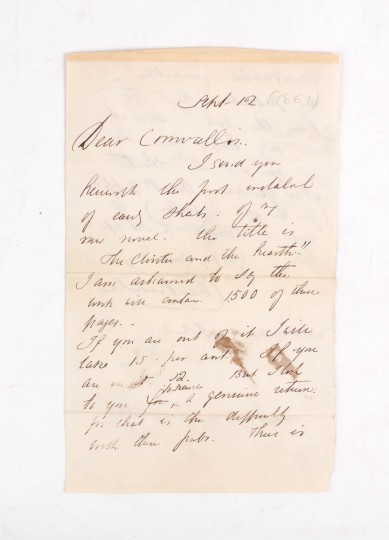 Sept 12
Dear Cornwallis.
I send you
herewith the first instalmt
of early sheets. of my
new novel. the title is
"The Cloister and the hearth"
I am ashamed to say the
work will contain 1500 of these
pages.
If you are out of it I will
take 15. per cent. If you
are in it 12. But I look
to you to secure a genuine return:
for that is the difficulty
with these pubs. There is